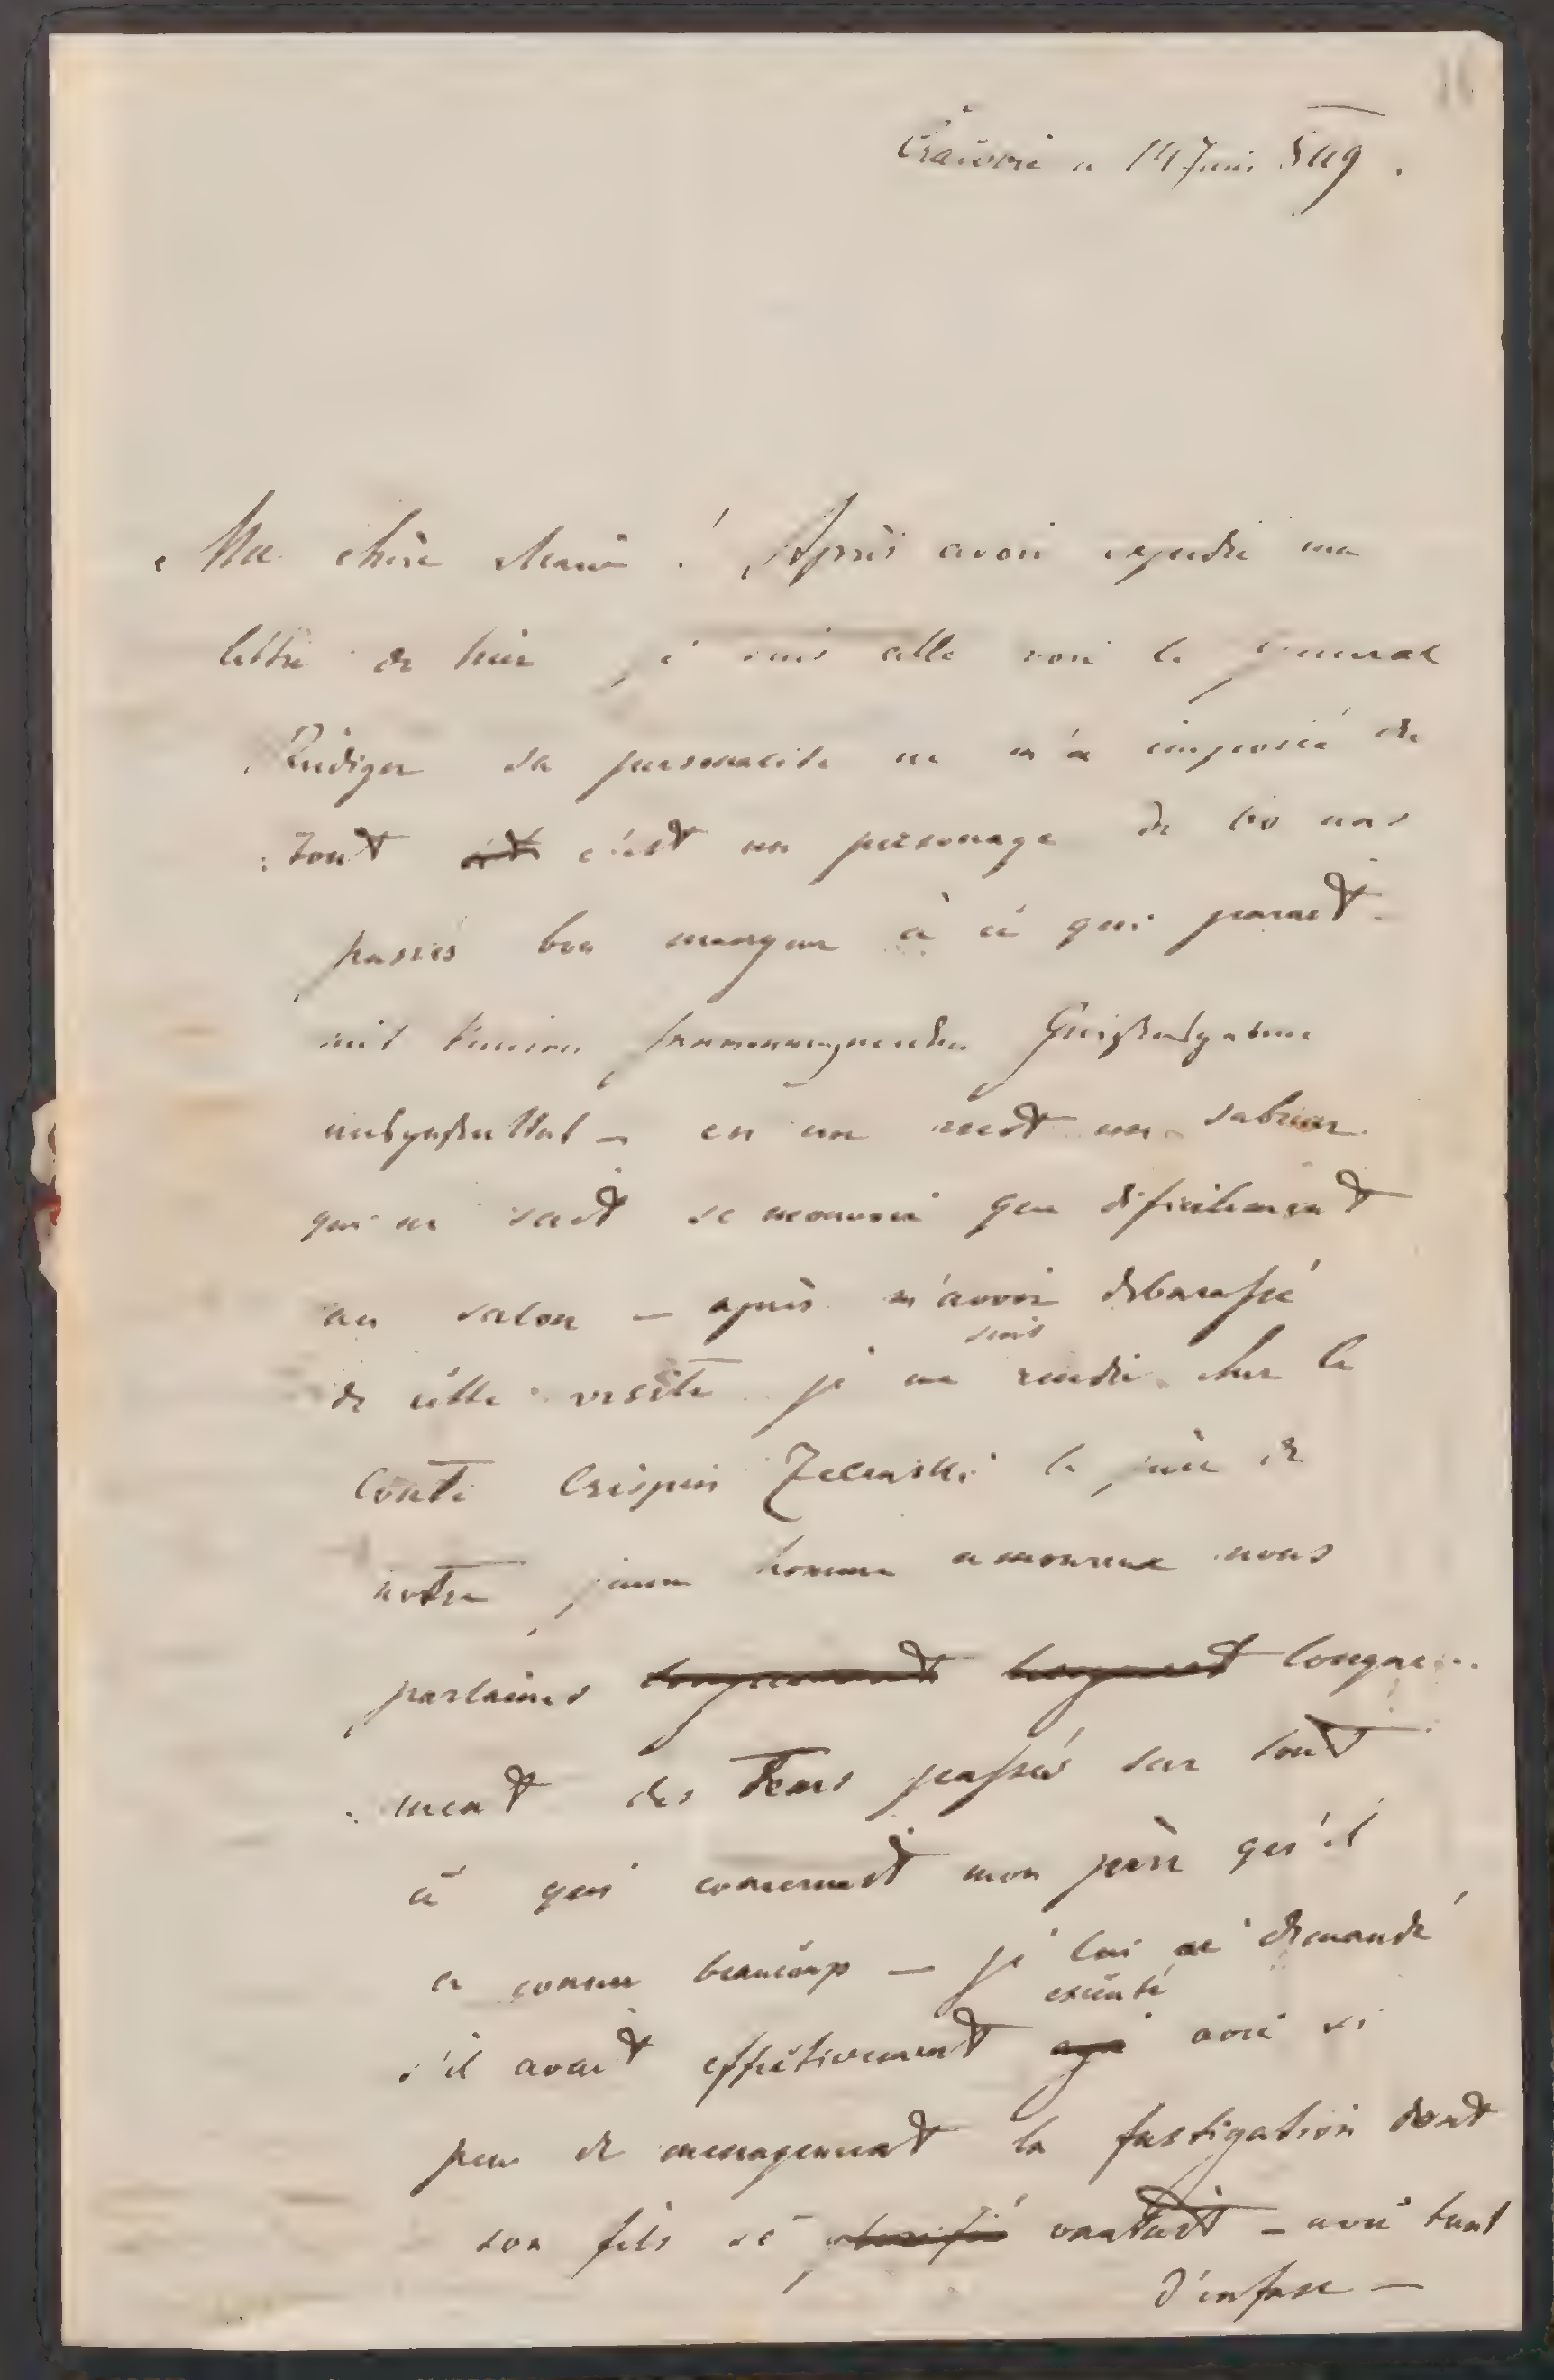 Cracovie a 14 Juin 849.
Ma chère Marie! Après avoir expedié ma
lettre de hier, je suis allé voir le general
Rüdiger sa personalite ne m'a imposée du
tout c'est un personage de 60 ans
passés bon à ce qui parait
mit einem
en un mot un sabreur
qui ne sait se mouvoir que dificilement
au salon — après m'avoir debarassé
de cette visite je me suis rendu chez le
Conte Crispin Zelenski le père de
notre jeune homme amoureux nous
parlames longue-
ment des tems passés sur tout
ce qui concernait mon père qu'il
a connu beaucoup — je lui ai demandé
s'il avait effectivement executé avec si
peu de menagement la fustigation dont
son fils se vantait — avec tant
d'enfase —